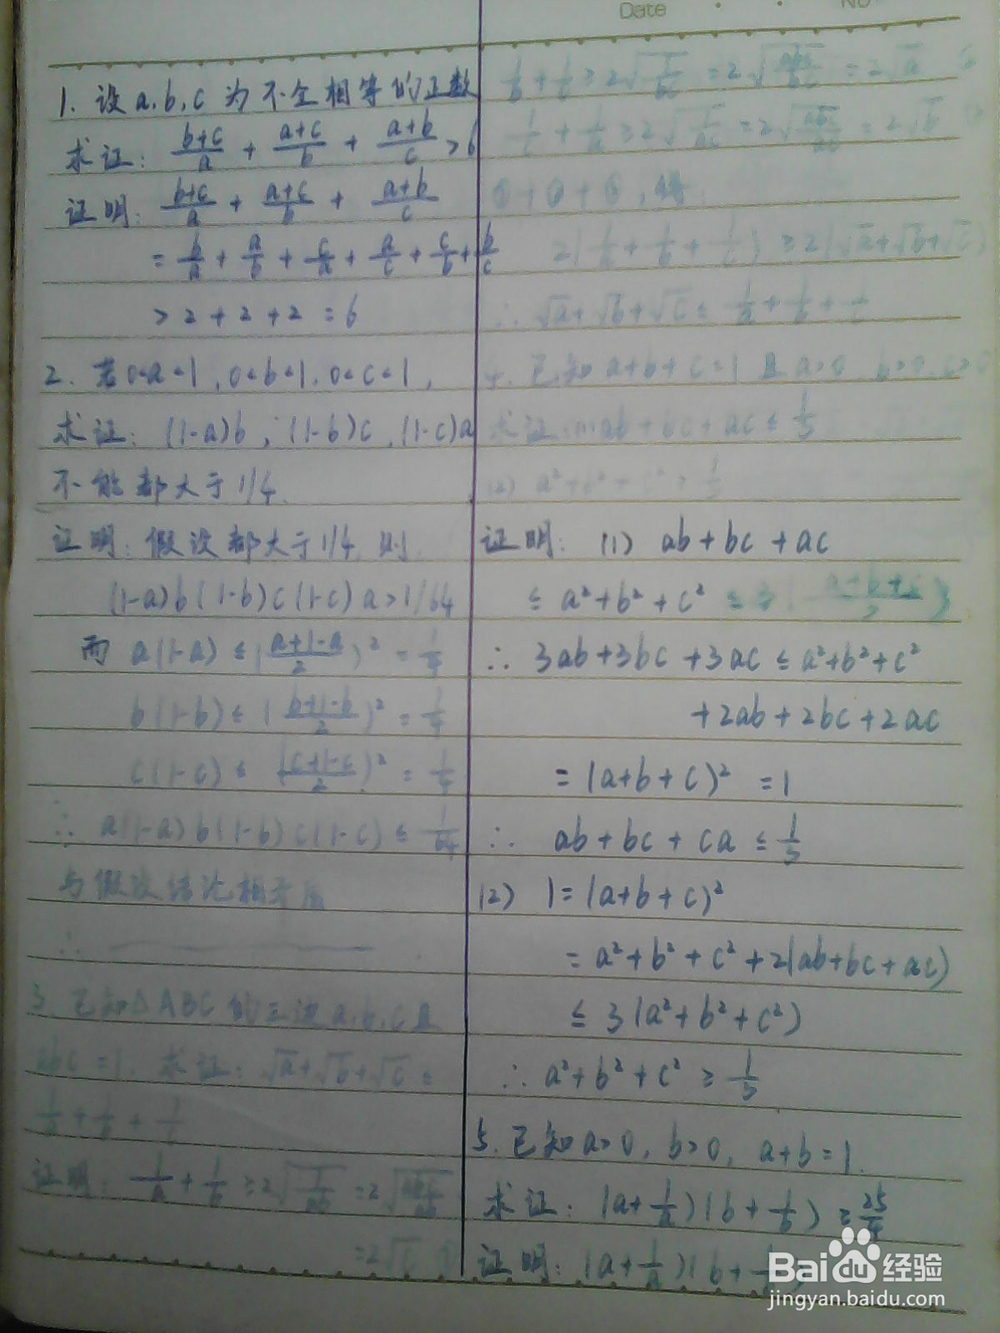 Date
No
1. 设a,b,c为不全相等的正数
求证: (b+c)/a + (a+c)/b + (a+b)/c >6
证明: (b+c)/a + (a+c)/b + (a+b)/c
= b/a + a/b + c/a + a/c + c/b + b/c
>2+2+2=6
2. 若0<a<1,0<b<1,0<c<1,
求证: (1-a)b,(1-b)c,(1-c)a
不能都大于1/4.
证明:假设都大于1/4,则
(1-a)b(1-b)c(1-c)a>1/64
而 a(1-a)≤((a+1-a)/2)² = 1/4
b(1-b)≤((b+1-b)/2)² = 1/4
c(1-c)≤((c+1-c)/2)² = 1/4
∴ a(1-a)b(1-b)c(1-c)≤1/64
与假设结论相矛盾
∴
3. 已知△ABC的三边a,b,c且
abc=1. 求证: √a+√b+√c≤
1/a + 1/b + 1/c
证明: 1/a + 1/b ≥2√(1/ab) =2√(abc/ab)
=2√c ①
1/b + 1/c ≥2√(1/bc) =2√(abc/bc) =2√a
1/c + 1/a ≥2√(1/ac) =2√(abc/ac) =2√b
①+②+③,得
2(1/a + 1/b + 1/c)≥2(√a+√b+√c)
∴ √a+√b+√c≤ 1/a + 1/b + 1/c
4. 已知a+b+c=1且a>0 b>0 c>0
求证:(1)ab+bc+ac≤1/3
(2) a²+b²+c²≥1/3
证明: (1) ab+bc+ac
≤a²+b²+c²
∴ 3ab+3bc+3ac≤a²+b²+c²
+2ab+2bc+2ac
=(a+b+c)² =1
∴ ab+bc+ca≤1/3
(2) 1=(a+b+c)²
=a²+b²+c²+2(ab+bc+ac)
≤3(a²+b²+c²)
∴ a²+b²+c²≥1/3
5. 已知a>0, b>0, a+b=1.
求证: (a+1/a)(b+1/b)≥25/4
证明: (a+1/a)(b+
Baidu 经验
jingyan.baidu.com